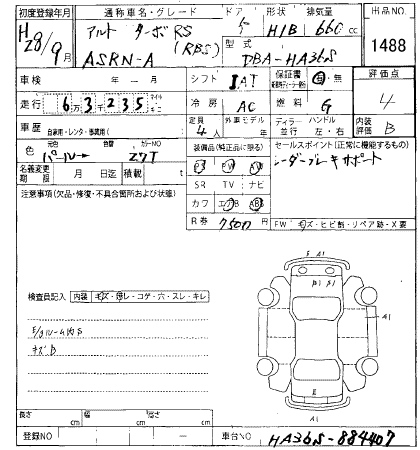 初度登録年月 通称車名・グレード ドア 形状 排気量 出品NO
H28/9月 アルト ターボRS (RBS) 5 H/B 660cc 1488
ASRN-A 型式 DBA-HA36S
車検 年 ー 月 シフト IAT 保証書 有・無 評価点
走行 6万3千235 冷房 AC 燃料 G 4
車歴 自家用・レンタ・事業用( ) 定員 4人 外車モデル ディーラー 並行 ハンドル 左・右 内装評価 B
色 元色 パール→ 色替 カラーNO Z7T 装備品(純正品に限る) セールスポイント(正常に機能するもの)
PS PW AW レーダーブレーキサポート
名義変更期限 月 日迄 積載 SR TV ナビ
注意事項(欠品・修復・不具合箇所および状態) カワ エアB ABS
R券 7500円 FW キズ・ヒビ割・リペア跡・X要
検査員記入 内装 キズ・汚レ・コゲ・穴・スレ・キレ
E/gルーム内S
キズB
E A1
A1
E
A1
長さ cm 幅 cm 高さ cm
登録NO ー 車台NO HA36S-884407